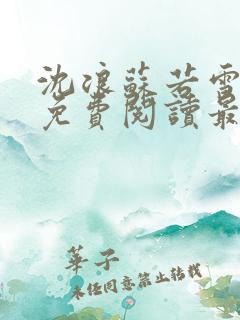 沈浪蘇若雪
免費閱讀最
華子
未任同意禁止轉載